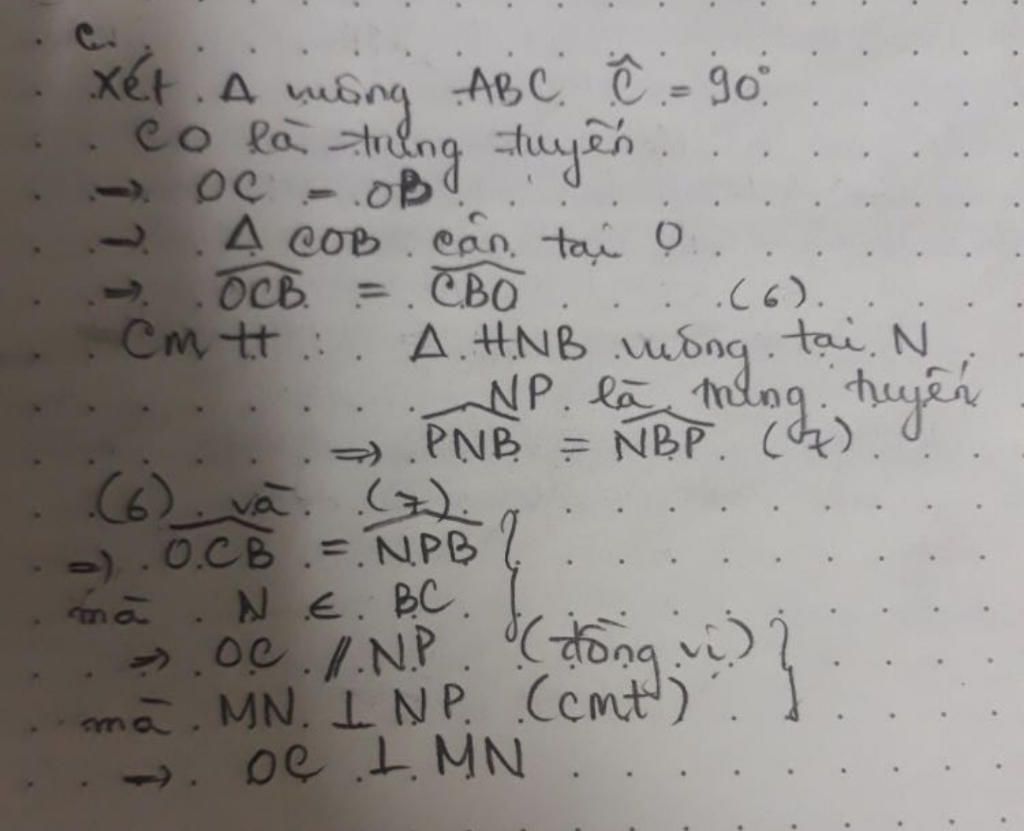 c.
Xét Δ vuông ABC Ĉ = 90°
CO là trung tuyến
→ OC = OB
→ Δ COB cân tại O
→ \widehat{OCB} = \widehat{CBO} (6)
Cm tt : Δ HNB vuông tại N
NP là trung tuyến
⇒ \widehat{PNB} = \widehat{NBP} (7)
(6) và (7)
⇒ \widehat{OCB} = \widehat{NPB} }
mà N ∈ BC
⇒ OC // NP (đồng vị) }
mà MN ⊥ NP (cmt)
→ OC ⊥ MN